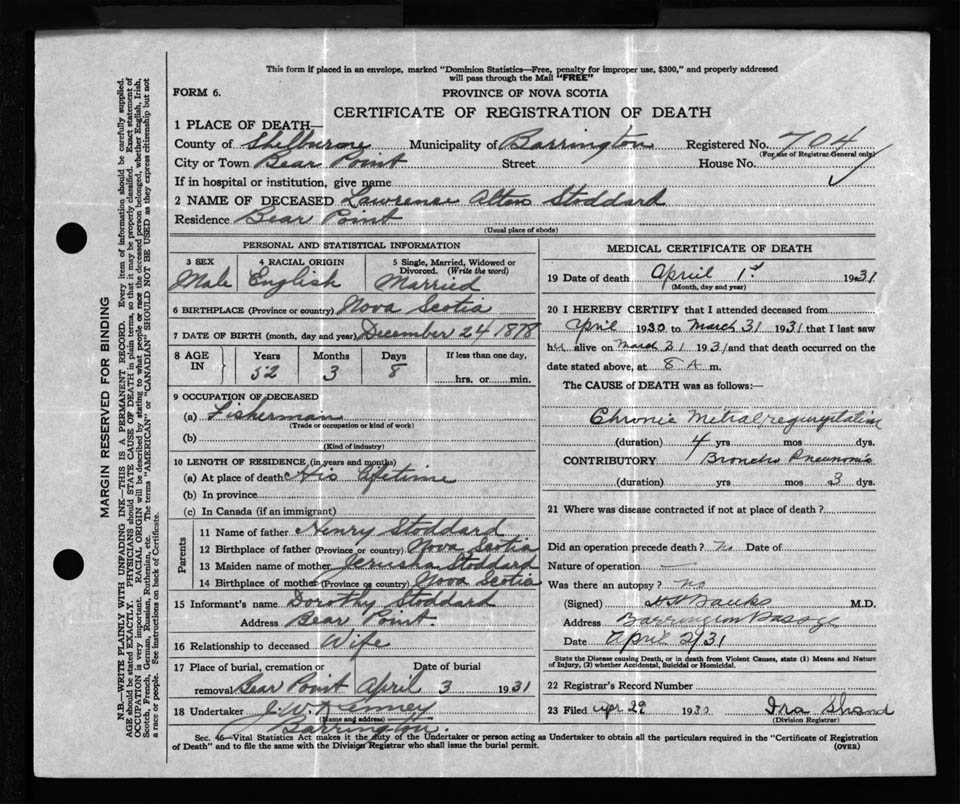 This form if placed in an envelope, marked "Dominion Statistics—Free, penalty for improper use, $300," and properly addressed
will pass through the Mail "FREE"
FORM 6.
PROVINCE OF NOVA SCOTIA
CERTIFICATE OF REGISTRATION OF DEATH
1 PLACE OF DEATH—
County of Shelburne Municipality of Barrington Registered No. 704
(For use of Registrar General only)
City or Town Bear Point Street House No.
If in hospital or institution, give name
2 NAME OF DECEASED Lawrence Alton Stoddard
Residence Bear Point
(Usual place of abode)
PERSONAL AND STATISTICAL INFORMATION
3 SEX 4 RACIAL ORIGIN 5 Single, Married, Widowed or
Divorced. (Write the word)
Male English Married
6 BIRTHPLACE (Province or country) Nova Scotia
7 DATE OF BIRTH (month, day and year) December 24 1878
8 AGE IN Years Months Days If less than one day,
52 3 8 hrs. or min.
9 OCCUPATION OF DECEASED
(a) Fisherman
(Trade or occupation or kind of work)
(b)
(Kind of industry)
10 LENGTH OF RESIDENCE (in years and months)
(a) At place of death His lifetime
(b) In province
(c) In Canada (if an immigrant)
Parents
11 Name of father Henry Stoddard
12 Birthplace of father (Province or country) Nova Scotia
13 Maiden name of mother Jerusha Stoddard
14 Birthplace of mother (Province or country) Nova Scotia
15 Informant's name Dorothy Stoddard
Address Bear Point.
16 Relationship to deceased Wife
17 Place of burial, cremation or Date of burial
removal Bear Point April 3 1931
18 Undertaker J. W. Kenney
(Name and address)
Barrington.
MEDICAL CERTIFICATE OF DEATH
19 Date of death April 1st 1931
(Month, day and year)
20 I HEREBY CERTIFY that I attended deceased from
April 1930 to March 31 1931 that I last saw
alive on March 31 1931 and that death occurred on the
date stated above, at 8 A m.
The CAUSE of DEATH was as follows:—
Chronic Mitral regurgitation
(duration) 4 yrs mos dys.
CONTRIBUTORY Broncho Pneumonia
(duration) yrs mos 3 dys.
21 Where was disease contracted if not at place of death?
Did an operation precede death? No Date of
Nature of operation —
Was there an autopsy? no
(Signed) Banks M.D.
Address Barrington Passage
Date April 2/31
State the Disease causing Death, or in death from Violent Causes, state (1) Means and Nature
of Injury, (2) whether Accidental, Suicidal or Homicidal.
22 Registrar's Record Number
23 Filed Apr 29 1930 Ira Shand
(Division Registrar)
Sec. 46—Vital Statistics Act makes it the duty of the Undertaker or person acting as Undertaker to obtain all the particulars required in the "Certificate of Registration
of Death" and to file the same with the Division Registrar who shall issue the burial permit.
(OVER)
MARGIN RESERVED FOR BINDING
N.B.—WRITE PLAINLY WITH UNFADING INK—THIS IS A PERMANENT RECORD. Every item of information should be carefully supplied.
AGE should be stated EXACTLY. PHYSICIANS should STATE CAUSE OF DEATH in plain terms, so that it may be properly classified. Exact statement of
OCCUPATION is very important. RACIAL ORIGIN will be described by stating to what people or race the deceased person belonged, whether English, Irish,
Scotch, French, German, Russian, Ruthenian, etc. The terms "AMERICAN" or "CANADIAN" SHOULD NOT BE USED as they express citizenship but not
a race or people. See instructions on back of Certificate.